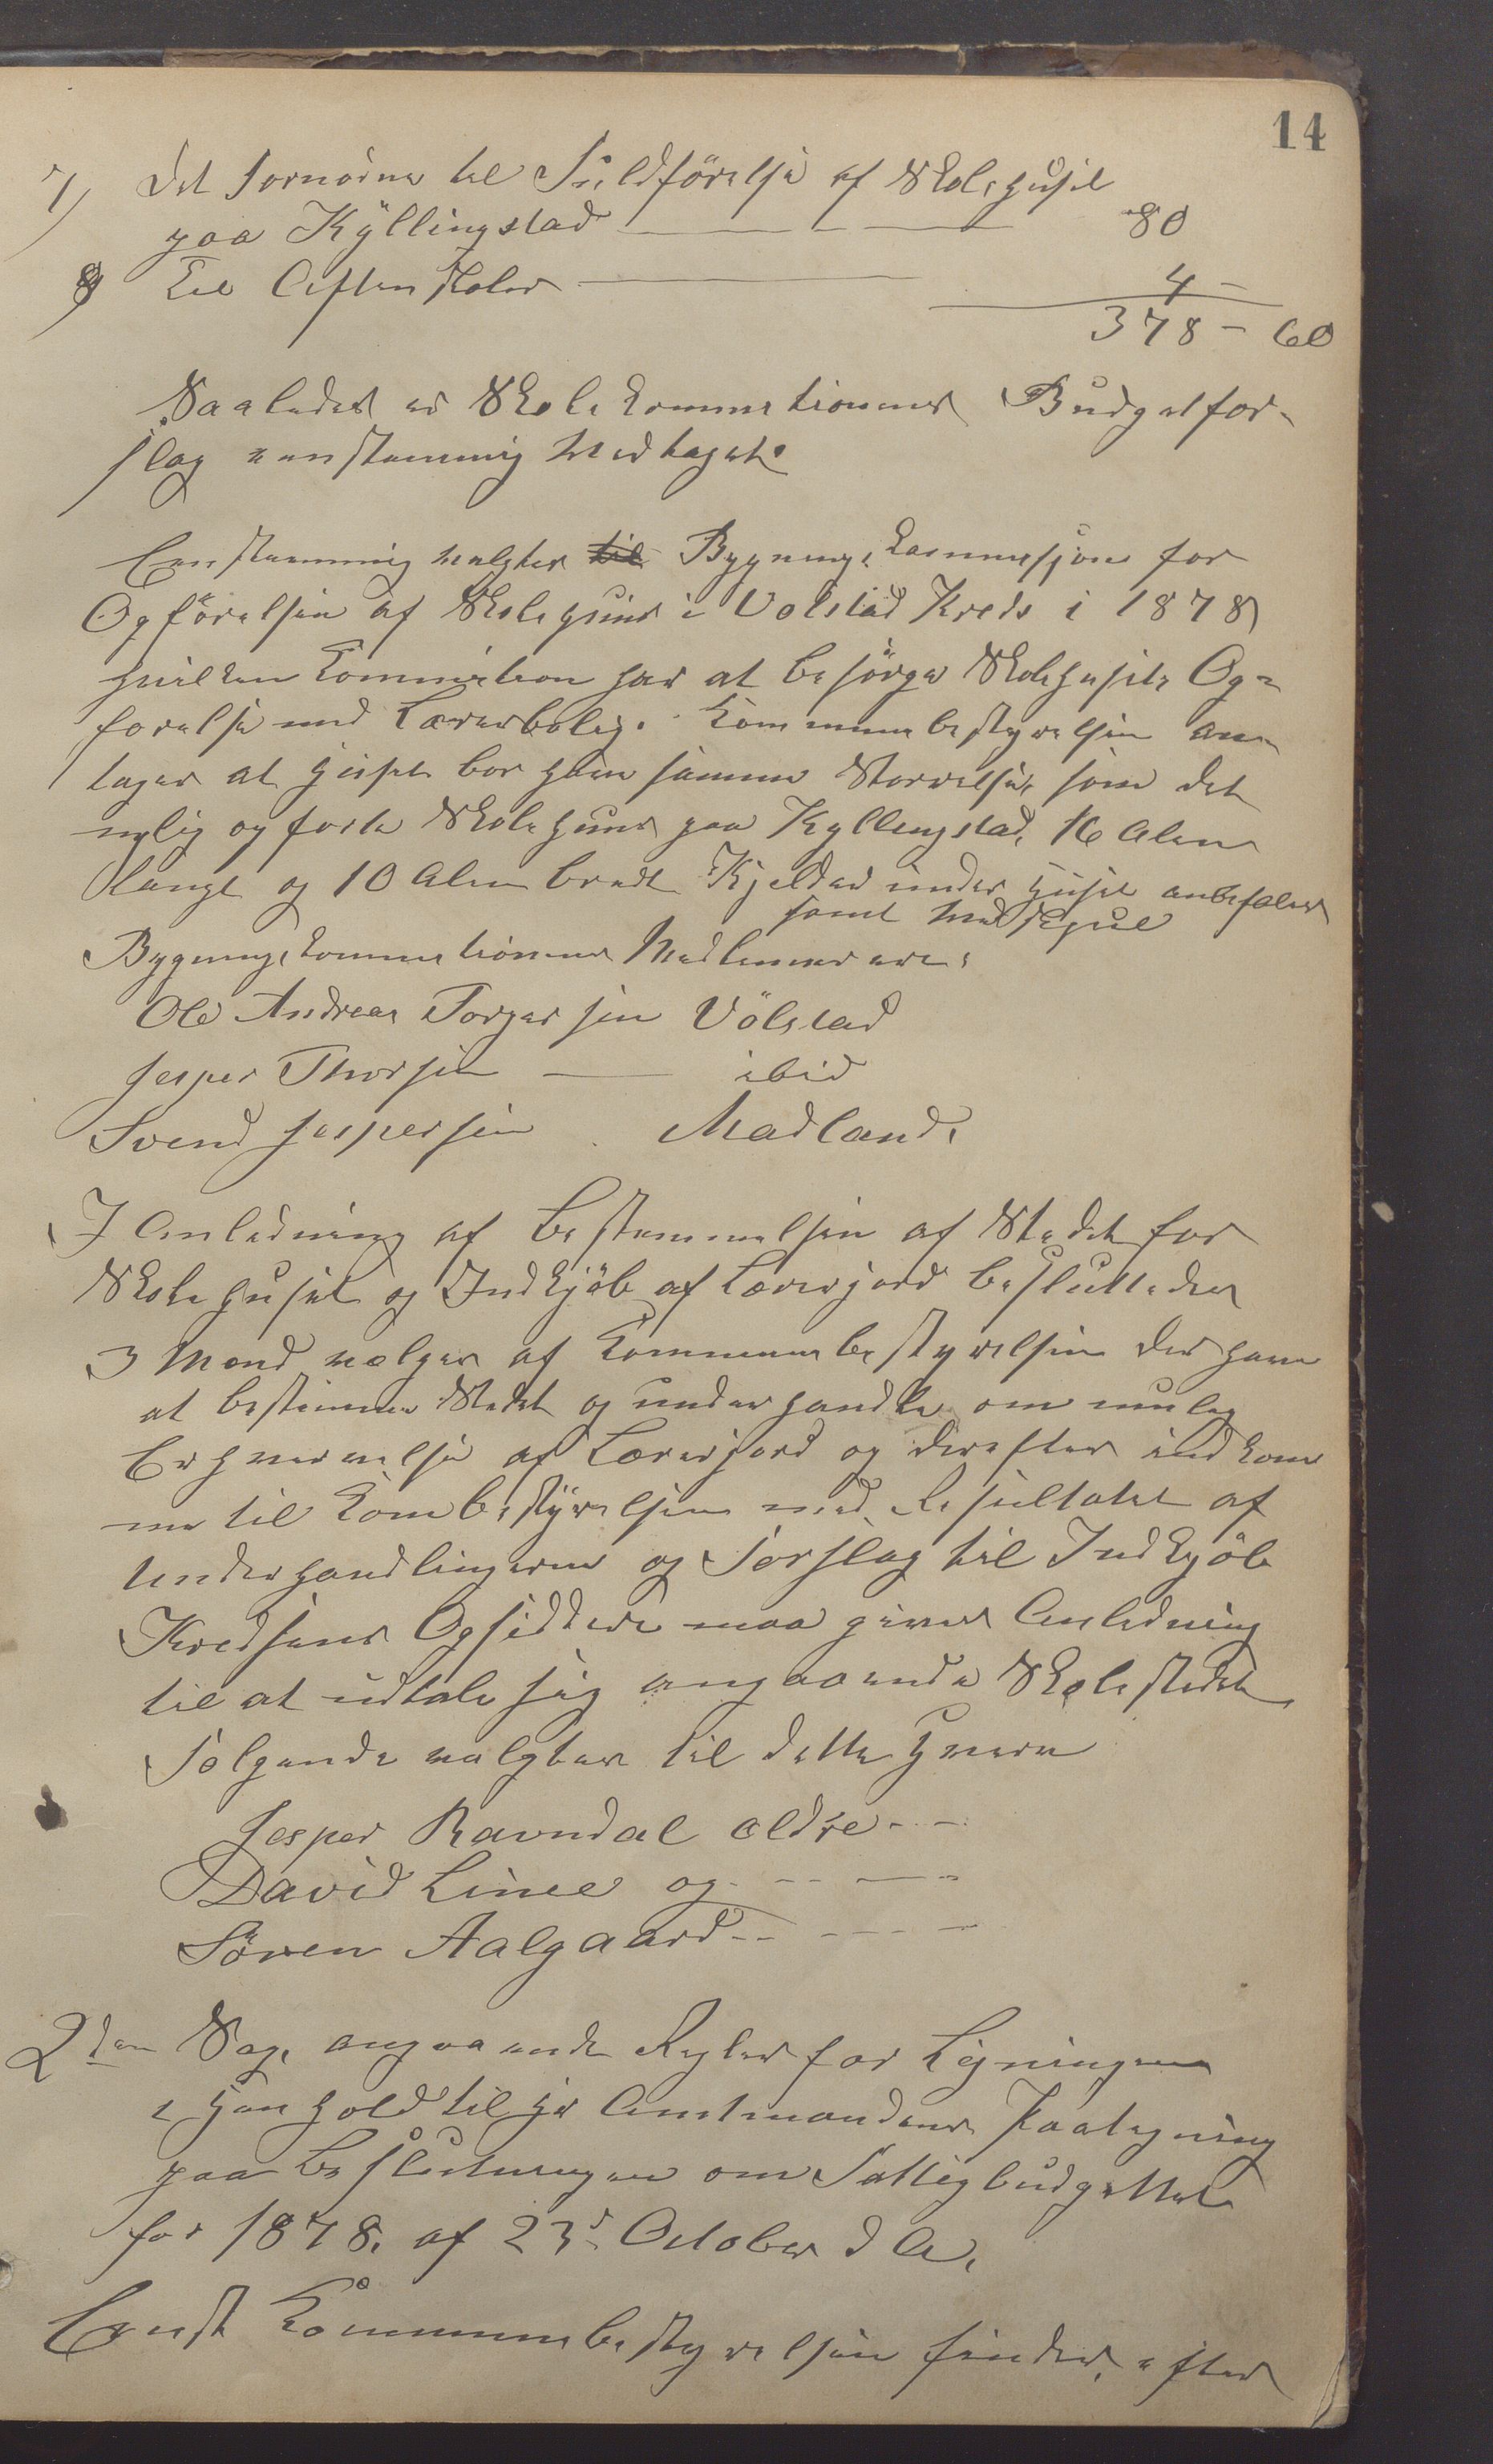 14
7/ Det fornödne til Fuldförelse af Skolehuset
paa Kÿllingstad — — — 80
8/ Til Aftenskoler — 4 –
378 – 60
Saaledes er Skolekommissionens Budgetfor-
slag eenstemmig vedtaget.
Eenstemmig valgtes Bygningskommisjon for
Opförelsen af Skolehuus i Volstad Kreds i 1878
hvilken Kommission har at besörge Skolehusets Op=
forelse med Lærerbolig. Kommunebestyrelsen an-
tager at huset bor have samme Storrelse, som det
nylig opforte Skolehuus paa Kyllingstad, 16 Alen
langt og 10 Alen bredt Kjelder under Huset anbefales
samt Vedskjul
Bygningskommissionens Medlemmer ere:
Ole Andreas Torgersen Völstad
Jesper Thorsen — ibid
Svend Jespersen Madland.
I Anledning af Bestemmelsen af Stedet for
Skolehuset og Indkjöb af Lærerjord besluttedes
3 Mænd vælges af Kommunebestyrelsen der have
at bestemme Stedet og underhandle om mulig
Erhvervelse af Lærerjord og derefter indkom
me til Kombestÿrelsen med Resultatet af
Underhandlingerne og Forslag til Indkjöb
Kredsens Opsiddere maa gives Anledning
til at udtale sig angaaende Skolestedet
Folgende valgtes til dette Hverv
Jesper Ravndal ældre - -
David Limee og - - — -
Sören Aalgaard - - - - -
2den Sag, angaaende Regler for Ligningen
i Henhold til Hr Amtmandens Paategning
paa Beslutningen om Fattigbudgettet
for 1878. af 23d October d A.
Eenst Kommunebestyrelsen finder, efter